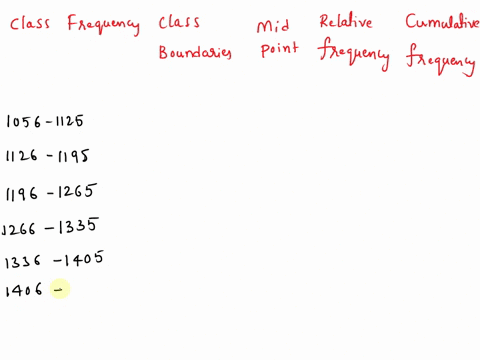 Class Frequency Class Boundaries Mid Point Relative frequency Cumulative frequency
1056 - 1125
1126 - 1195
1196 - 1265
1266 - 1335
1336 - 1405
1406 -